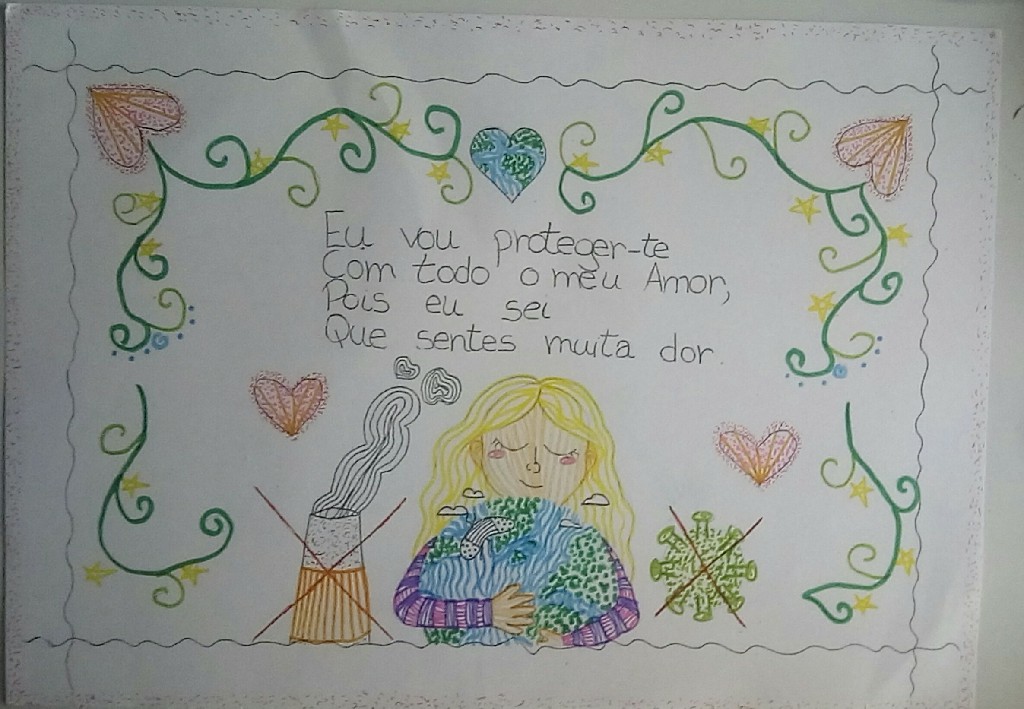 Eu vou proteger-te
Com todo o meu Amor,
Pois eu sei
Que sentes muita dor.